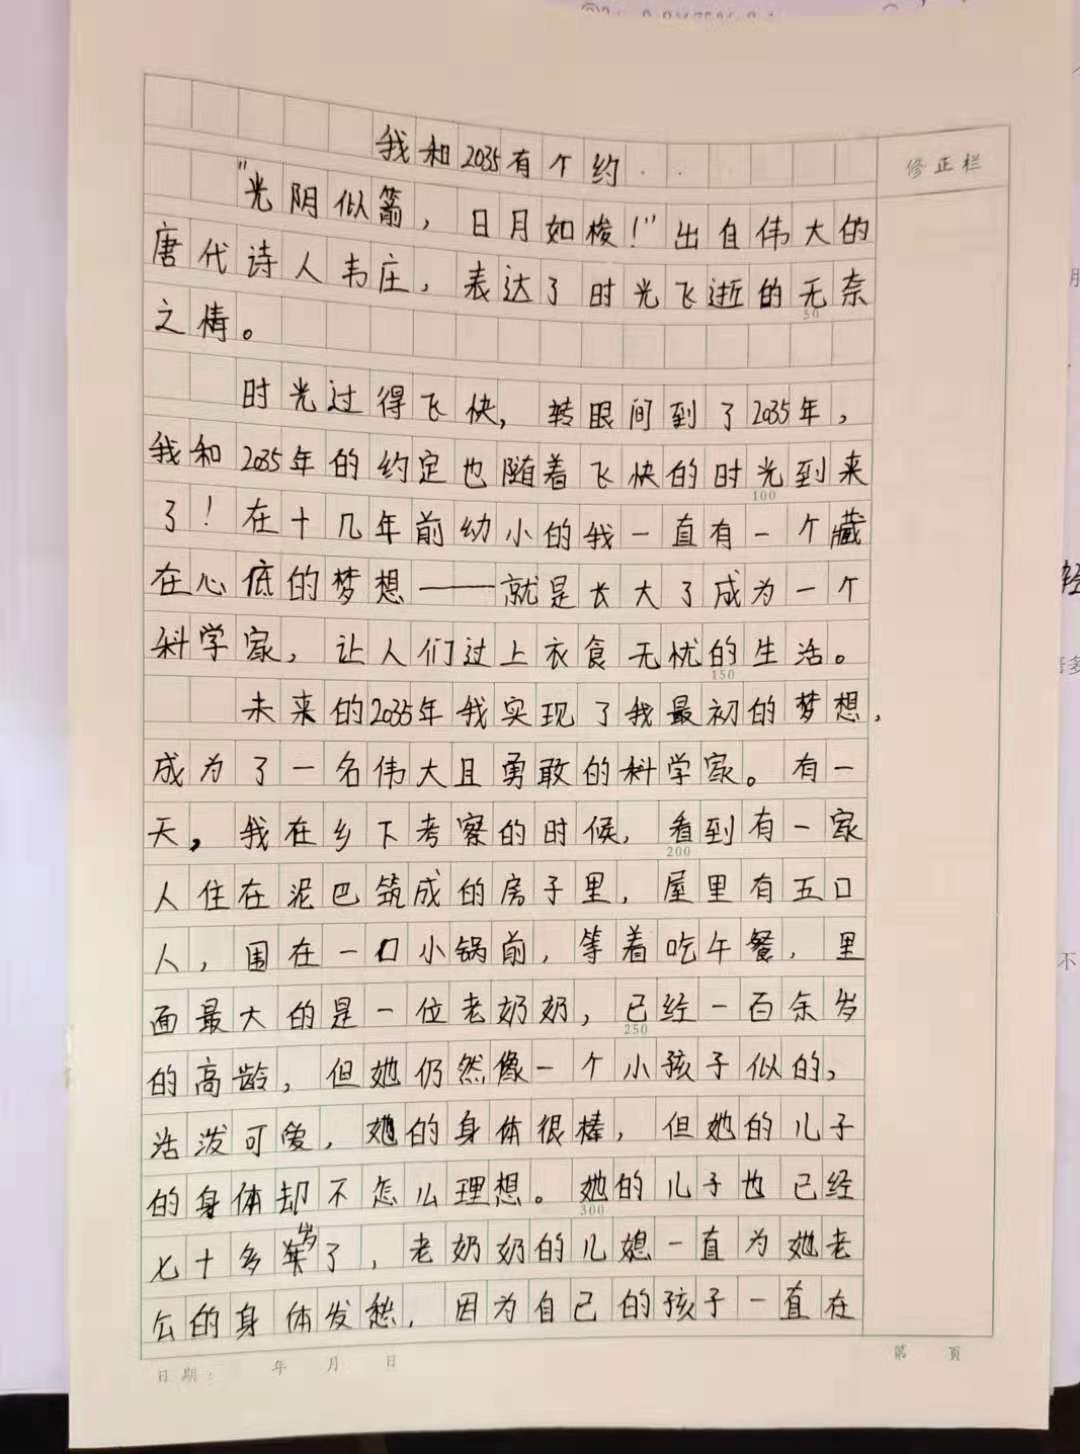 我和2035有个约
修正栏
"光阴似箭，日月如梭！"出自伟大的
唐代诗人韦庄，表达了时光飞逝的无奈
50
之情。
时光过得飞快，转眼间到了2035年，
我和2035年的约定也随着飞快的时光到来
100
了！在十几年前幼小的我一直有一个藏
在心底的梦想——就是长大了成为一个
科学家，让人们过上衣食无忧的生活。
150
未来的2035年我实现了我最初的梦想，
成为了一名伟大且勇敢的科学家。有一
天，我在乡下考察的时候，看到有一家
200
人住在泥巴筑成的房子里，屋里有五口
人，围在一口小锅前，等着吃午餐，里
面最大的是一位老奶奶，已经一百余岁
250
的高龄，但她仍然像一个小孩子似的，
活泼可爱，她的身体很棒，但她的儿子
的身体却不怎么理想。她的儿子也已经
300
七十多岁了，老奶奶的儿媳一直为她老
公的身体发愁，因为自己的孩子一直在
日期： 年 月 日
第 頁